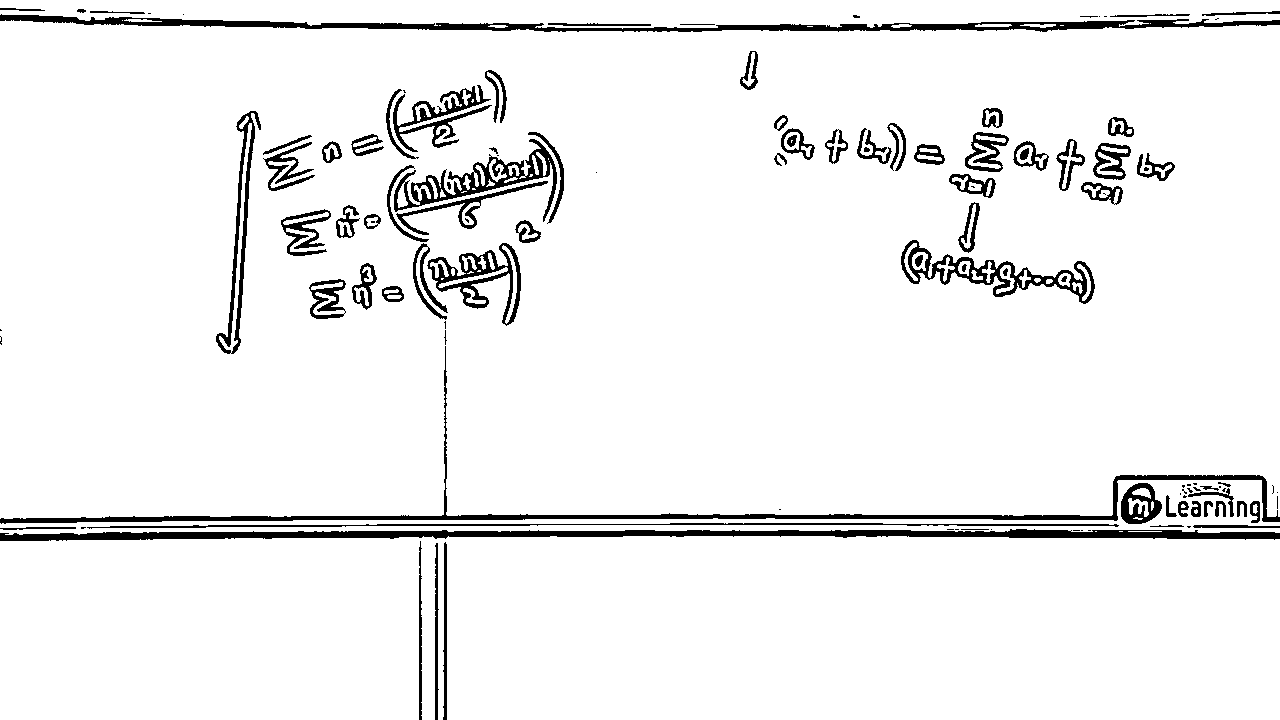 ∑ n = (n.n+1/2)
∑ n² = ((n)(n+1)(2n+1)/6)
∑ n³ = (n.n+1/2)²
(aᵣ + bᵣ) = ∑ⁿᵣ₌₁ aᵣ + ∑ⁿ·ᵣ₌₁ bᵣ
(a₁+a₂+a₃+...aₙ)
m Learning